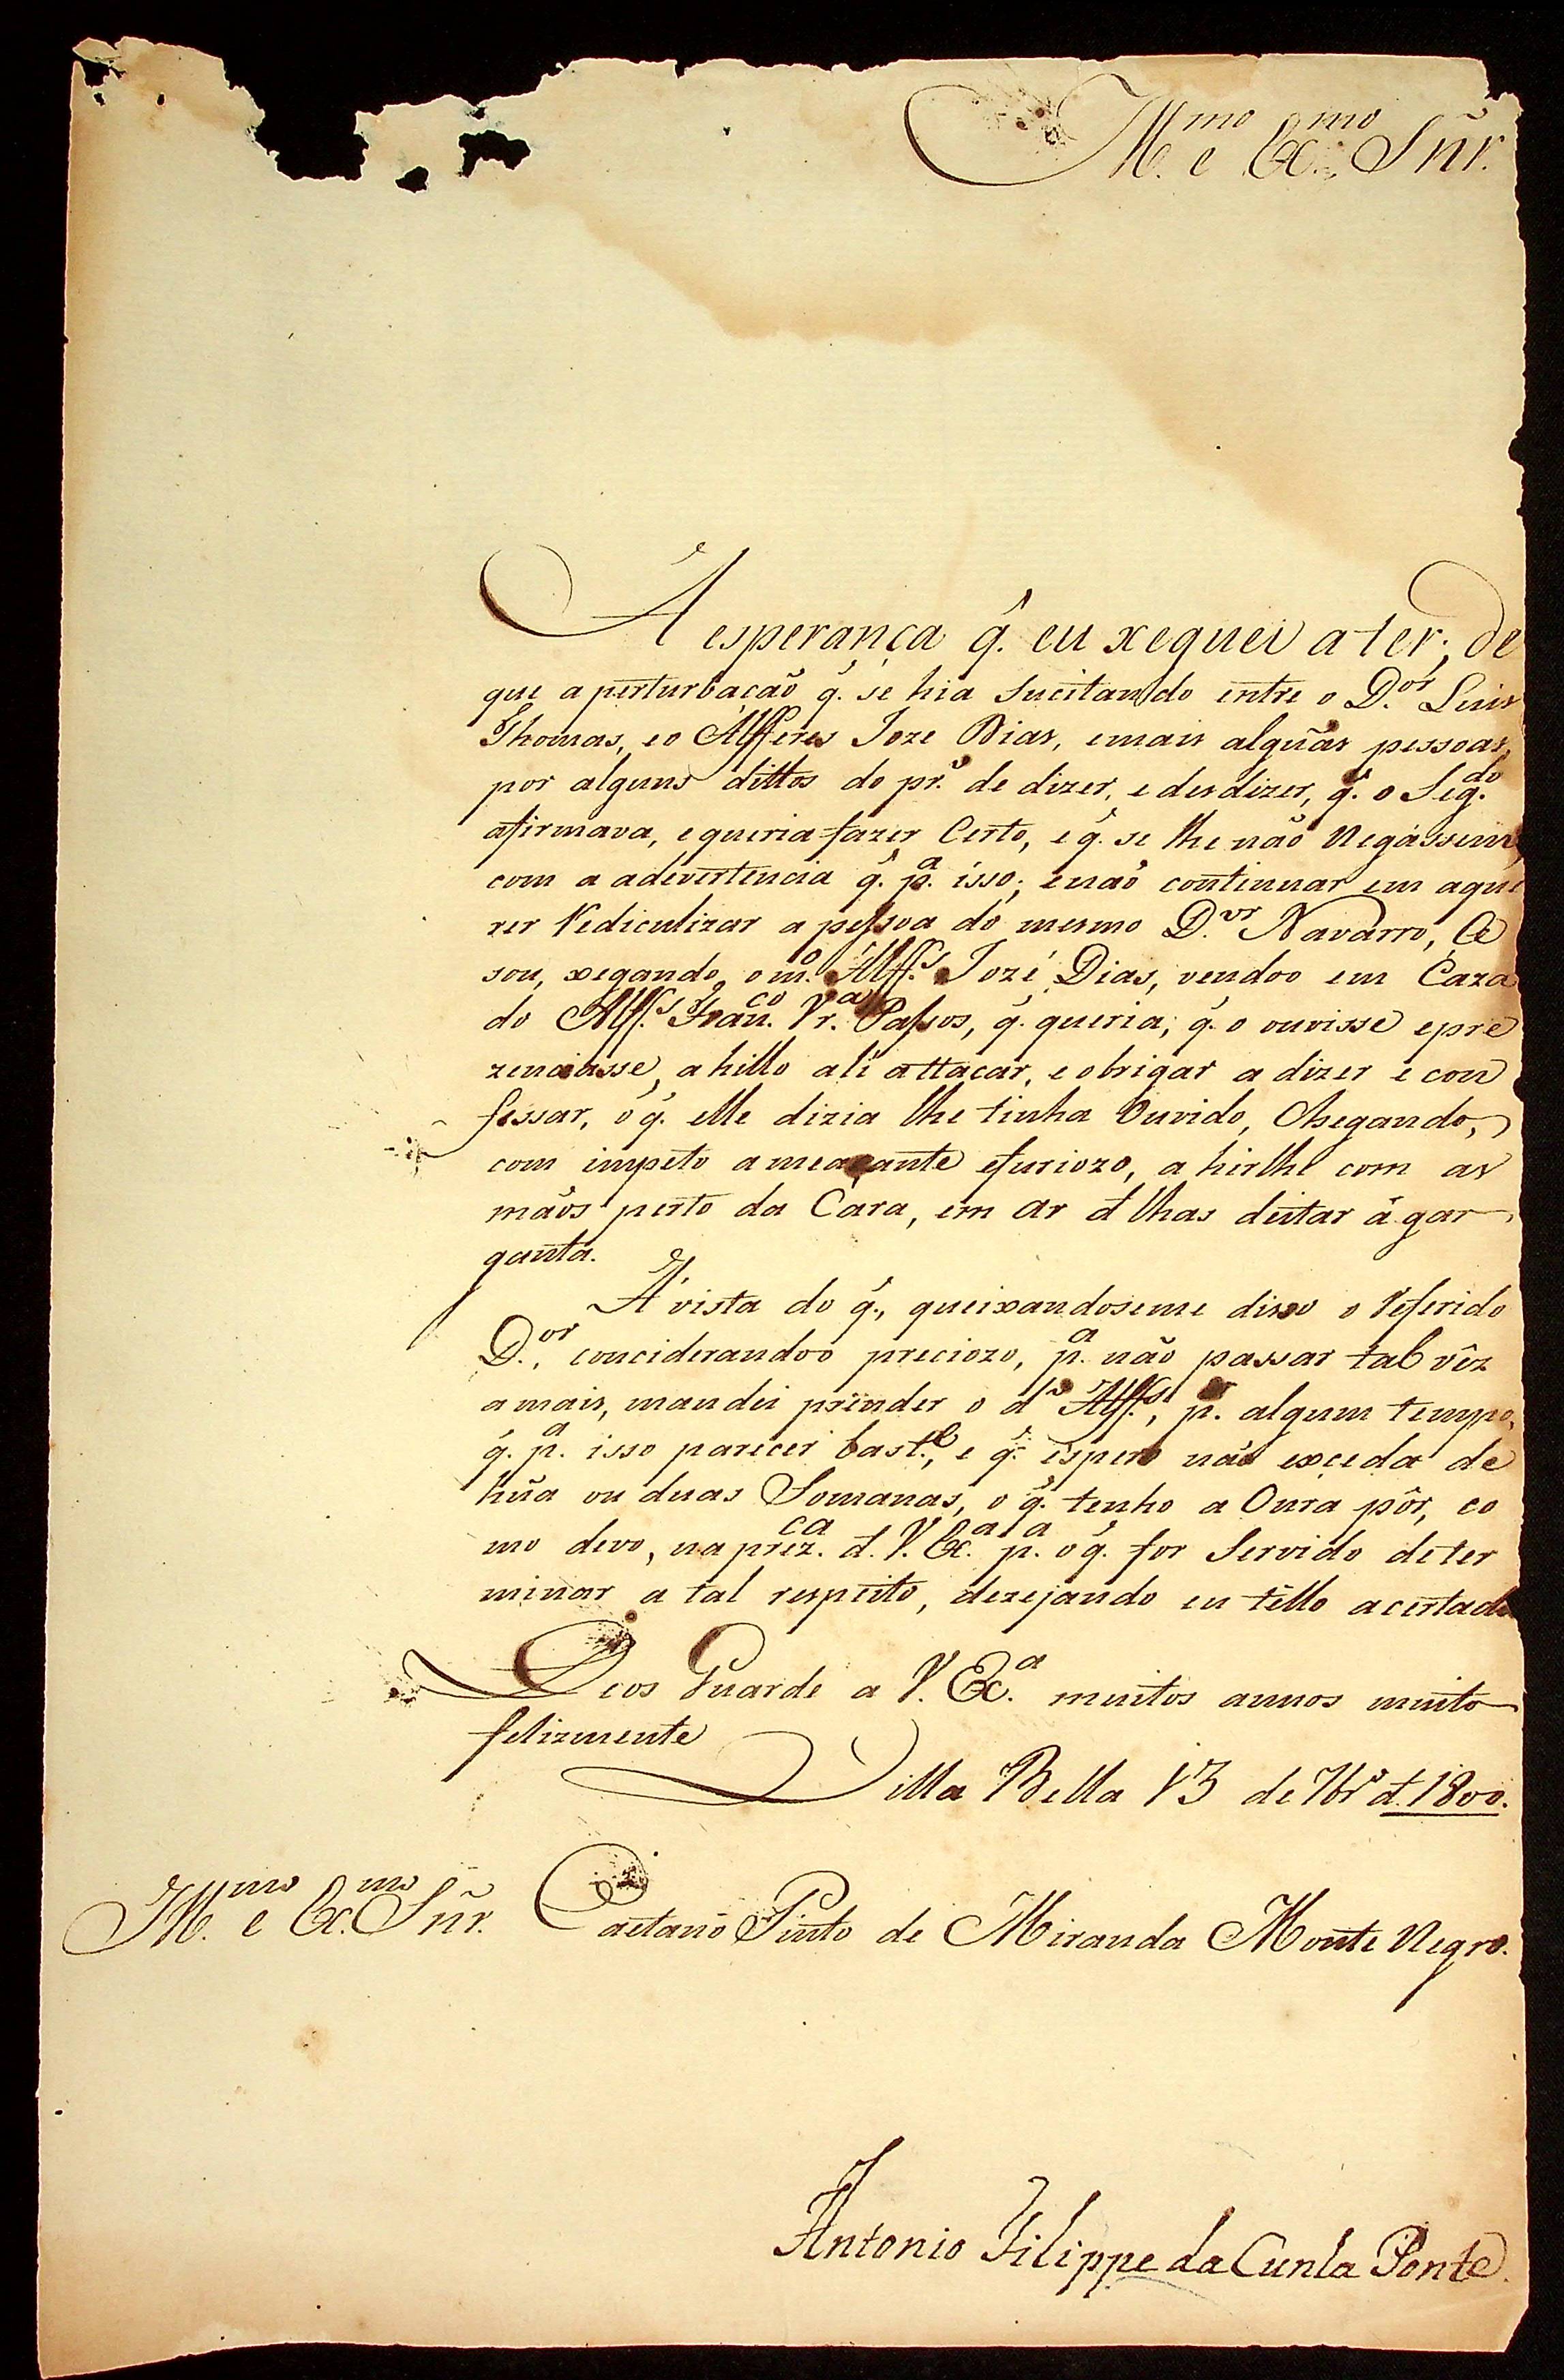 Ill.mo e Ex.mo Sñr.
A esperança q̃. eu xeguei a ter, de
que a perturbacaõ q̃. se hia sucitando entre o D.or Luis
Thomas, e o Alfferes Joze Dias, e mais algũas pessoas,
por alguns dittos do pr.o de dizer, e desdizer, q̃. o Seg.do
afirmava, e queria fazer Certo, e q̃. se lhe naõ Negássem,
com a adevertencia q̃. p.a isso; e naõ continuar em aque
rer Rediculizar a pessoa do mesmo D.or Navarro, Ce
sou, xegando, o m.o Alff.s Jozé Dias, vendoo em Caza
do Alff.s Fran.co Vr.a Passos, q̃. queria, q̃. o ouvisse e pre
zenciasse, a hillo ali attacar, e obrigar a dizer e con
fessar, o q̃. elle dizia lhe tinha Ouvido, Chegando,
com impeto ameaçante e furiozo, a hirlhe com as
mãos perto da Cara, em ar d lhas deitar á gar
ganta.
Á vista do q̃., queixandoseme disso o Referido
D.or, conciderandoo preciozo, p.a não passar talvêz
a mais, mandei prender o d.o Alff.s, p.r algum tempo,
q̃. p.a isso parecer bast.e, e q̃. espero naõ exceda de
hũa ou duas Somanas, o q̃. tenho a Onra pôr, co
mo devo, na prez.ca d. V. Ex.a p.a o q̃. for Servido deter
minar a tal respeito, dezejando eu têllo acertado
Deos Guarde a V. Ex.a muitos annos muito
felizmente
Villa Bella 13 de 7br.o d. 1800.
Ill.mo e Ex.mo Sñr. Caetano Pinto de Miranda Monte Negro.
Antonio Filippe da Cunha Ponte